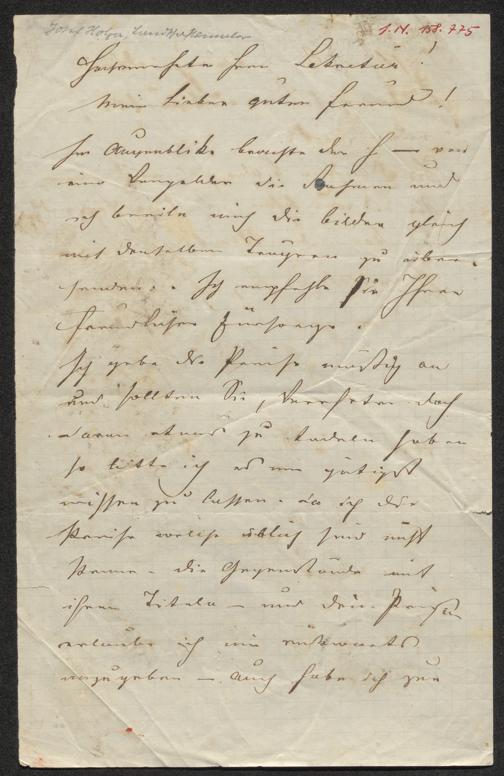 Josef Holzer, Landschaftsmaler
I. N. 158.775
Hochverehrter Herr Sekretär!
Mein lieber guter Freund!
Im Augenblike brachte der H — von
ein Vergolder die Rahmen und
ich beeile mich die bilder gleich
mit denselben Trägern zu über-
senden. Ich empfehle sie Ihrer
freundlichen Fürsorge.
Ich gebe die Preise mäßig an
und sollten Sie, Verehrter doch
daran etwas zu tadeln haben
so bitte ich es mir gütigst
wissen zu lassen. da ich die
Preise welche üblich sind nicht
kenne. die Gegenstände mit
ihren Titeln — und den Preisen
erlaube ich mir rückwärts
anzugeben — auch habe ich zur